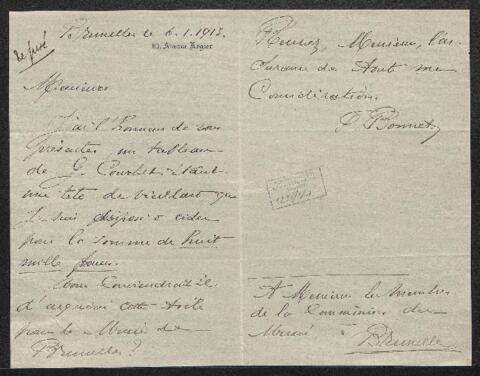 Bruxelles le 6.1.1913.
Avenue Rogier
refusé
Messieurs
J'ai l'honneur de vous
présenter un tableau
de G. Courbet étant
une tête de vieillard que
je suis disposé à céder
pour la somme de huit
mille francs.
Vous conviendrait-il
d'acquérir cette toile
pour le Musée de
Bruxelles ?
Recevez, Messieurs, l'as-
surance de toute ma
Considération.
Bonnet
A Messieurs les Membres
de la Commission du
Musée à
Bruxelles